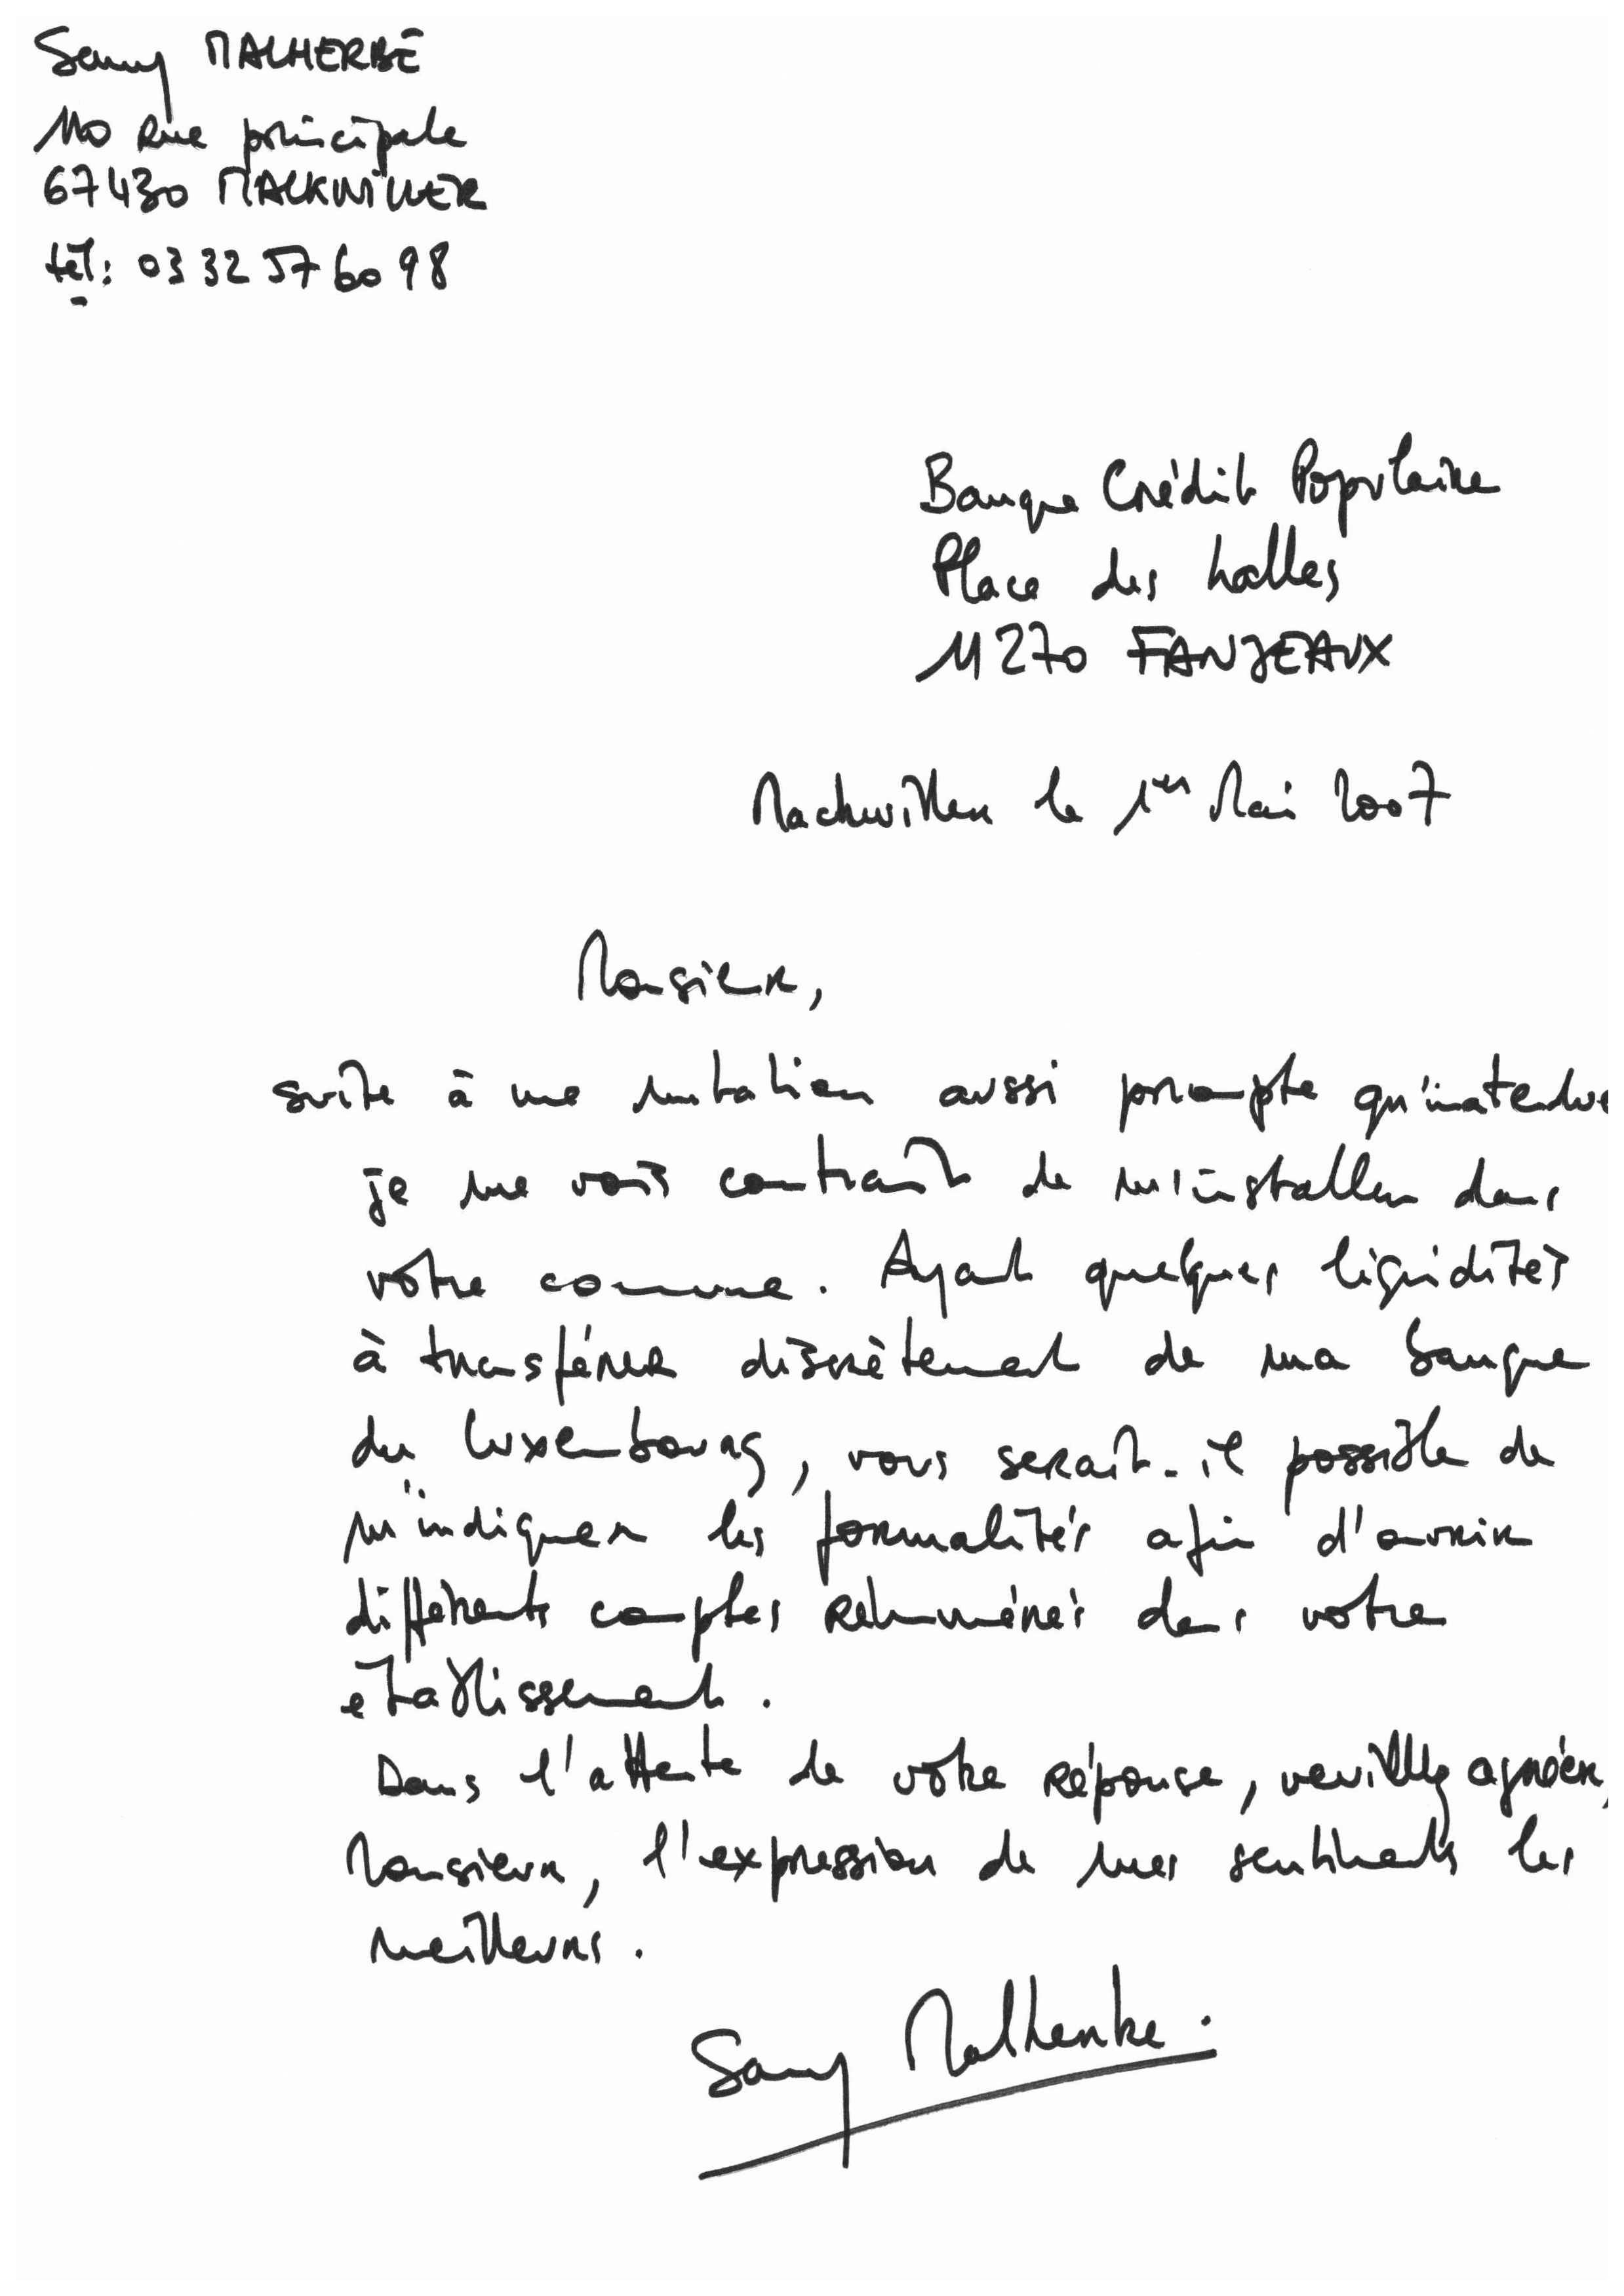 Samy MALHERBE
110 Rue principale
67430 MACKWILLER
tél: 03 32 57 60 98
Banque Crédit Populaire
Place des halles
11270 FANJEAUX
Mackwiller le 1er Mai 2007
Monsieur,
suite à une mutation aussi prompte qu'inatendue
je me vois contraint de m'installer dans
votre commune. Ayant quelques liquidités
à transférer discrètement de ma banque
du Luxembourg, vous serait-il possible de
m'indiquer les formalités afin d'ouvrir
différents comptes rémunérés dans votre
établissement.
Dans l'attente de votre réponse, veuillez agréer,
Monsieur, l'expression de mes sentiments les
meilleurs.
Samy Malherbe.